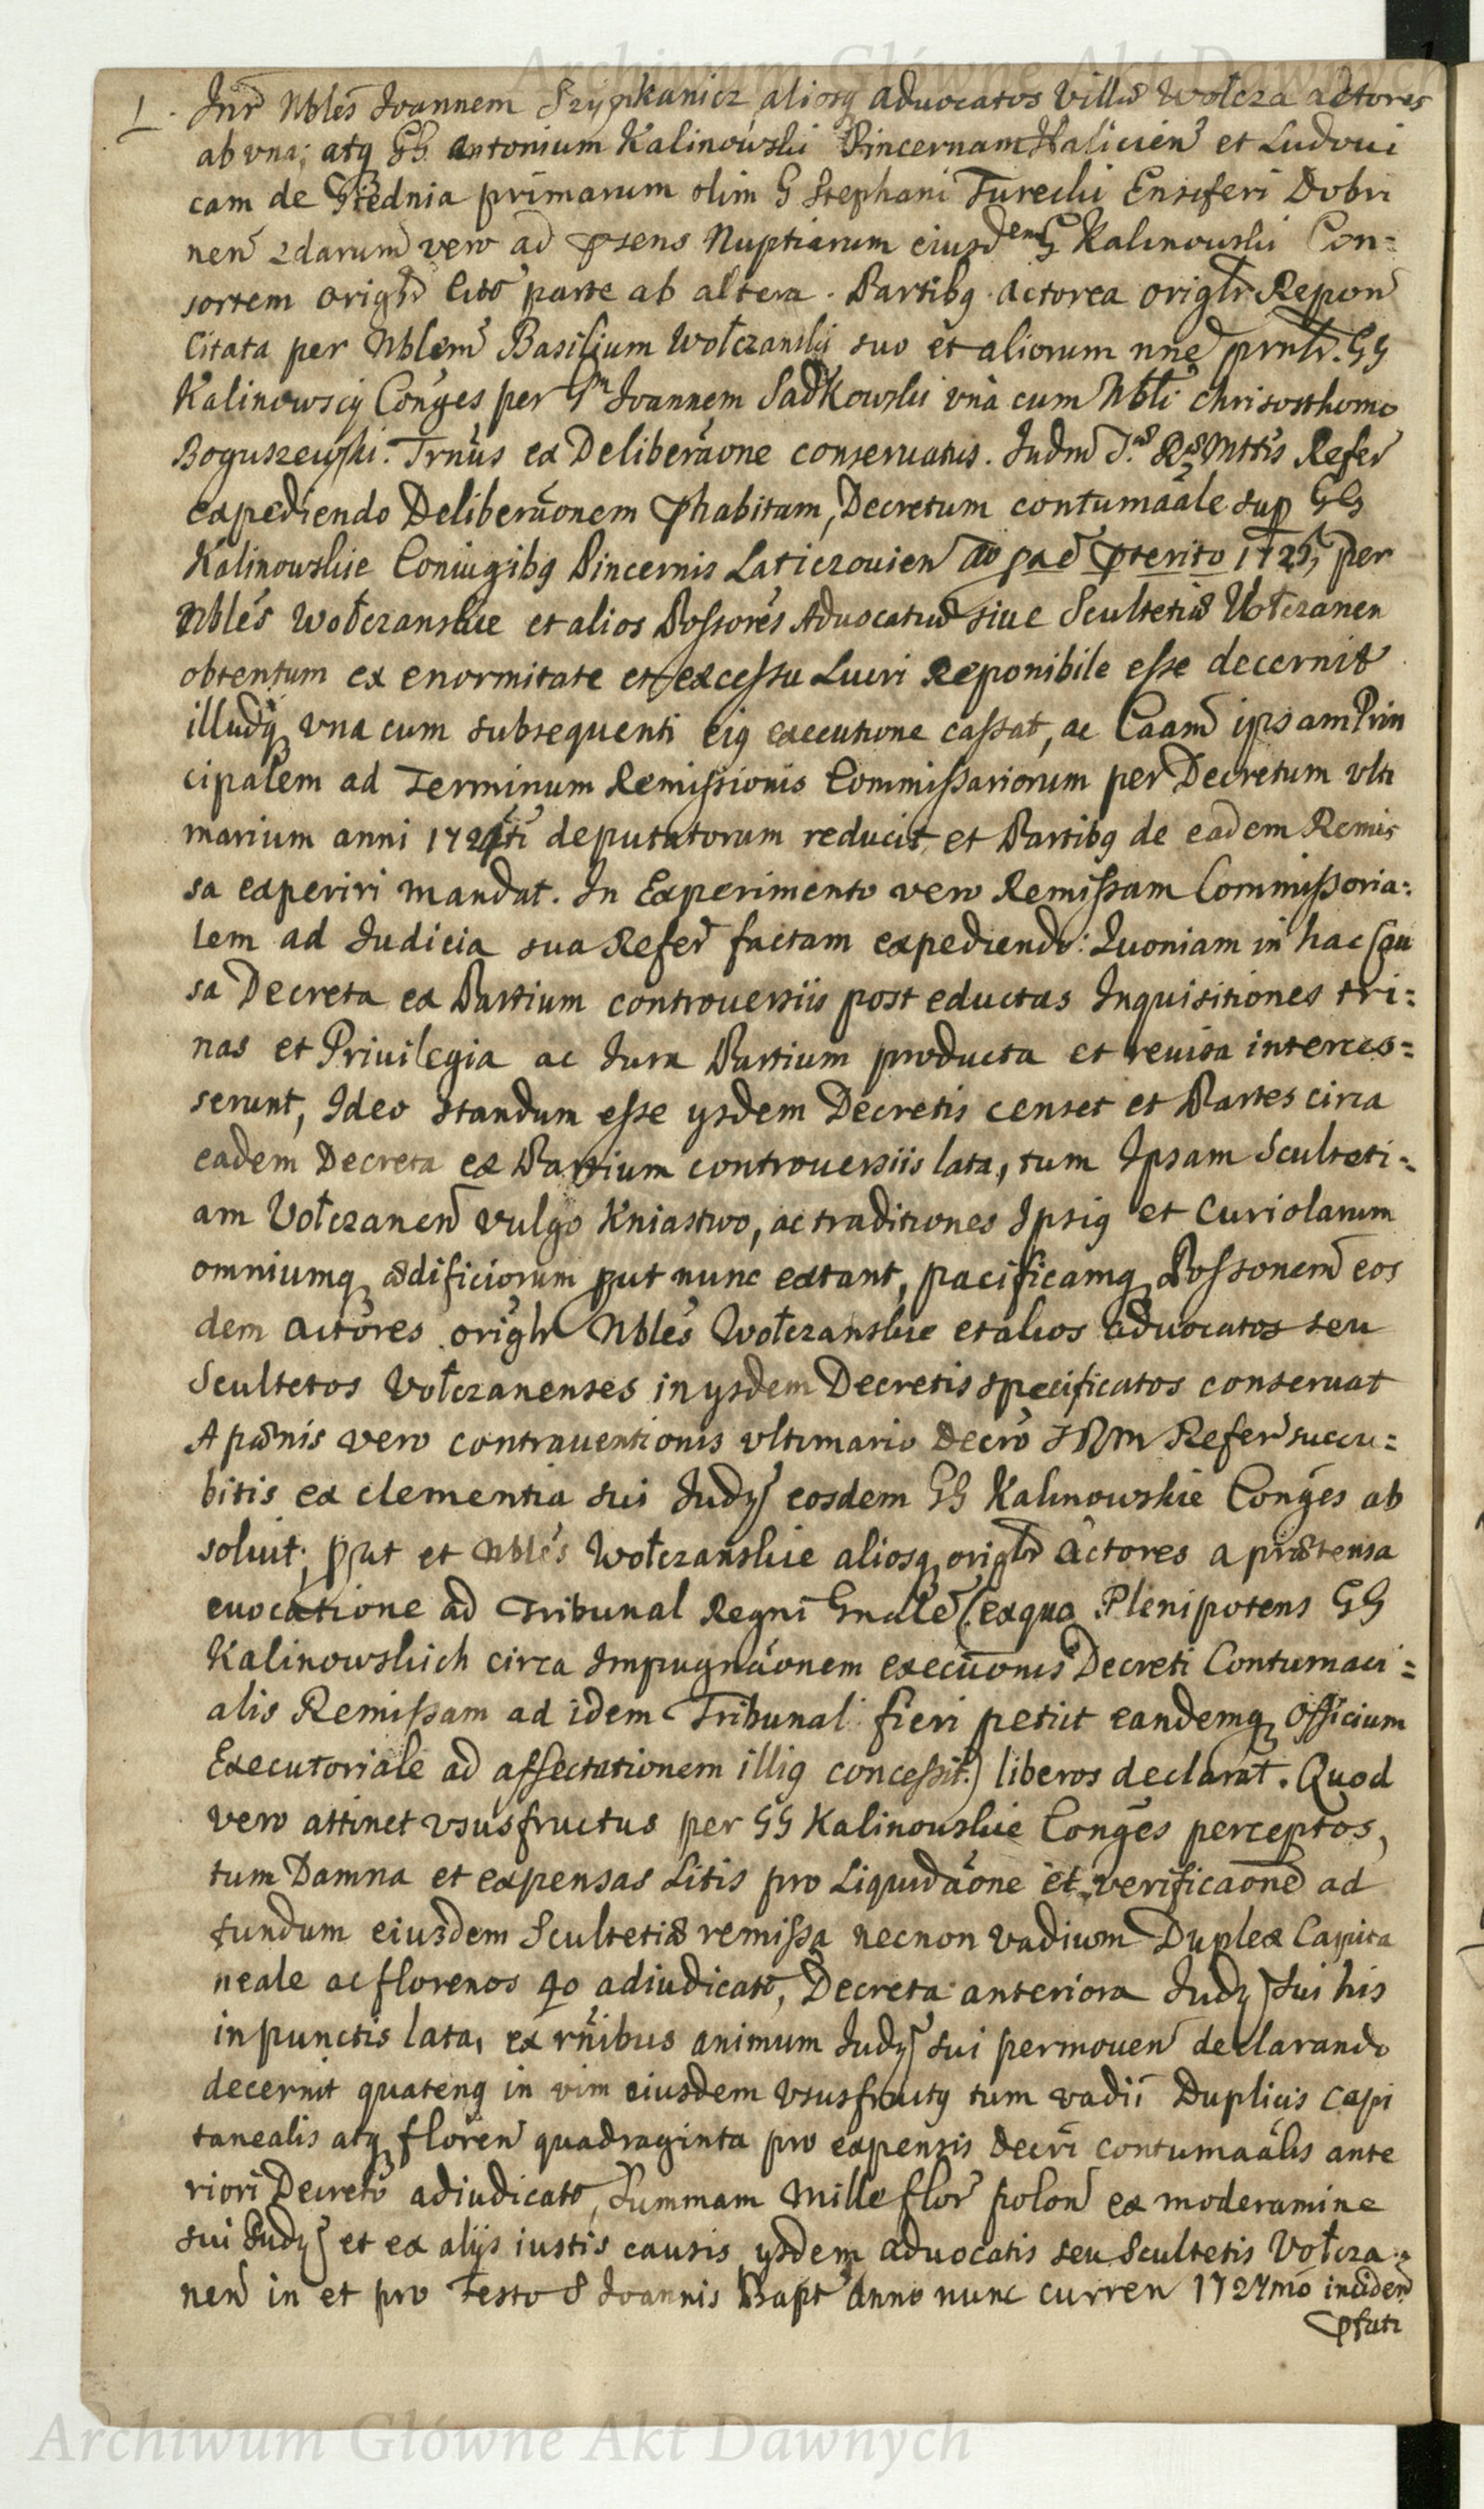 Archiwum Główne Akt Dawnych
1. Inr̃ Nbles̃ Joannem Szypkanicz aliosq̢ advocatos villæ Wołcza actores
ab vna; atq̢ GG Antonium Kalinowski Pincernam Halicien̄ et Ludovi
cam de Siednia primarum olim G Stephani Turecki Ensiferi Dobri
nen̄ 2darum vero ad p̄sens Nuptiarum eiusdem G Kalinowski Con=
sortem origlr̃ Cito parte ab altera. Partibq̢ actorea origlr̃ Repon̄
Citata per Nblem̃ Basilium Wołczanskĳ suo et aliorum nn̄e prntr̃. GG
Kalinowscy Conges̃ per Gm Joannem Sadkowski vnà cum Nbli Chrisosthomo
Boguszewski. Trnūs ex Deliberāone conservatus. Judm̃ Mttis Refer̄
expediendo Deliberāonem p̄habitam, Decretum contumaāle sup GG
Kalinowskie Coniugibq̢ Pincernis Laticzovien̄ p̄terito 1725, per
Nbles̃ Wołczanskie et alios Possores̃ Advocatiæ siue Scultetiæ Wołczanen
obtentum ex enormitate et excessu Lucri Reponibile esse decernit
illudq̢ vna cum subsequenti eiq̢ executione cassat, ac Caam̃ ipsam Prin
cipalem ad Terminum Remissionis Commissariorum per Decretum vlti
marium anni deputatorum reducit et Partibq̢ de eadem Remis
sa experiri mandat. In Experimento vero Remissam Commissoria:
lem ad Judicia sua Refer̄ factam expediendo: Quoniam in hac Cau
sa Decreta ex Partium controversiis post eductas Inquisitiones tri=
nas et Privilegia ac Jura Partium producta et revisa interces=
serunt, Ideo standum esse ysdem Decretis censet et Partes circa
eadem Decreta ex Partium controversiis lata, tum Ipsam Sculteti=
am Vołczanen̄ vulgo Kniastwo, ac traditiones Ipsiq̢ et Curiolarum
omniumq̢ ædificiorum put nunc extant, pacificamq̢ Possonem̃ eos
dem actores origlr̃ Nbles̃ Wołczanskie et alios advocatos seu
Scultetos Vołczanenses in ysdem Decretis specificatos conservat
A pænis vero contraventionis vltimario Decrō JRM Refer̄ succu=
bitis ex clementia sui Judÿ eosdem GG Kalinowskie Conges̃ ab
soluit; put et Nbles̃ Wołczanskie aliosq̢ origlr̃ Actores a prætensa
euocatione ad Tribunal Regni Gnale (:ex quo Plenipotens GG
Kalinowskich circa Impugnāonem execūonis Decreti Contumaci=
alis Remissam ad idem Tribunal fieri petiit eandemq̢ Officium
Executoriale ad affectationem illiq̢ concessit:) liberos declarat. Quod
vero attinet vsusfructus per GG Kalinowskie Conges̃ perceptos,
tum Damna et expensas Litis pro Liquidāone et verificāone ad
fundum eiusdem Scultetiæ remissa necnon vadium Duplex Capita
neale ac florenos 40 adiudicato, Decreta anteriora Judÿ sui his
in punctis lata, ex rñibus animum Judÿ sui permoven̄ declarando
decernit quatenq̢ in vim eiusdem vsusfructq̢ tum vadii Duplicis Capi
tanealis atq̢ floren̄ quadraginta pro expensis decri contumaālis ante
riori Decreto adiudicato, summam Mille flor̄ polon̄ ex moderamine
sui Judÿ et ex alÿs iustis causis ysdem advocatis seu Scultetis Vołcza=
nen̄ in et pro Festo S Joannis Bapt̄ Anno nunc curren 1727mo inciden̄
p̄fati
Archiwum Główne Akt Dawnych